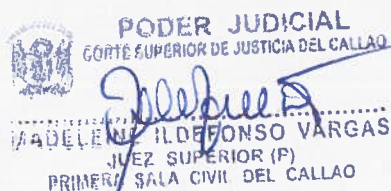 PODER JUDICIAL
CORTE SUPERIOR DE JUSTICIA DEL CALLAO
MADELEINE ILDEFONSO VARGAS
JUEZ SUPERIOR (P)
PRIMERA SALA CIVIL DEL CALLAO